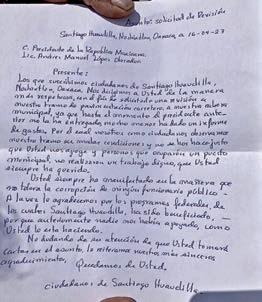 Asunto: solicitud de Revisión
Santiago Huaudilla, Nochixtlan, Oaxaca. a 16-04-23
C. Presidente de la República Mexicana.
Lic. Andres Manuel López Obrador.
Presente:
Los que suscribimos ciudadanos de Santiago Huaudilla,
Nochixtlan, Oaxaca. Nos dirigimos a Usted de la manera
más respetuosa, con el fin de solicitarle una revisión a
nuestro tramo de pavimentación carretera, a nuestra cabecera
municipal, ya que hasta el momento el presidente
no ha entregado, mucho menos ha dado un informe
de gastos. Por el cual nosotros como ciudadanos observamos
nuestro tramo en malas condiciones y no se hace justo
que Usted nos apoye y personas que ocupan un puesto
municipal, no realizaron un trabajo digno, que Usted
siempre ha querido.
Usted siempre ha manifestado en la mañanera que
no tolera la corrupción de ningún funcionario público.-
A la vez le agradecemos por los programas federales, de
los cuales Santiago Huaudilla, ha sido beneficiado, -
por que anteriormente nadie nos había apoyado, como
Usted lo esta haciendo.
No dudando de su atención de que Usted tomará
cartas en el asunto, le reiteramos nuestro más sincero
agradecimiento,
Quedamos de Usted.
ciudadanos de Santiago Huaudilla.